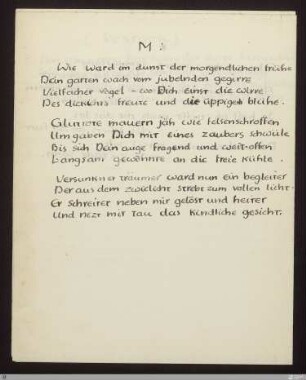 M
Wie ward im dunst der morgendlichen frühe
Dein garten wach vom jubelnden gegirre
Vielfacher vögel – wo Dich einst die wirre
Des dickichts freute und die üppige blühe.
Glutrote mauern jäh wie felsenschroffen
Umgaben Dich mit eines zaubers schwüle
Bis sich Dein auge fragend und weit-offen
Langsam gewöhnte an die freie kühle.
Versunkner träumer ward nun ein begleiter
Der aus dem zwielicht strebt zum vollen licht.
Er schreitet neben mir gelöst und heiter
Und nezt mit tau das kindliche gesicht.